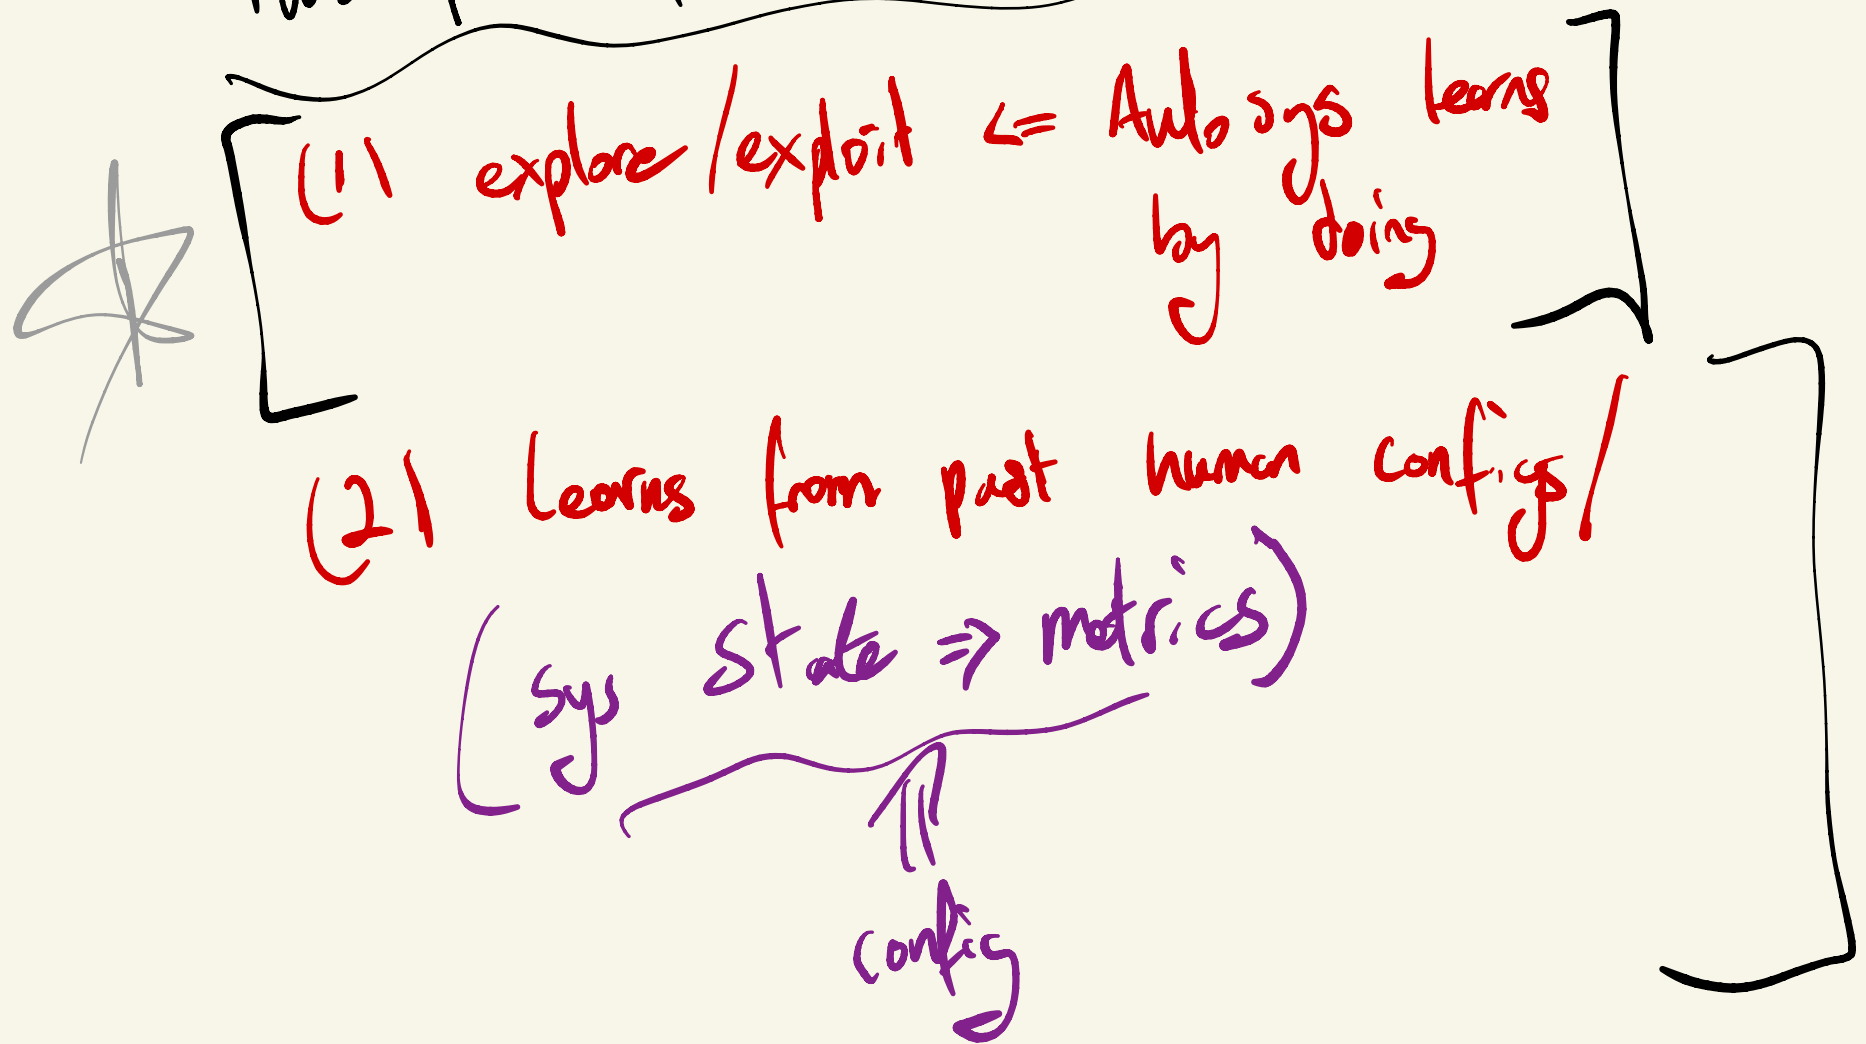 (1) explore/exploit <= Autosys learns
by doing
(2) learns from past human configs/
(sys state => metrics)
config